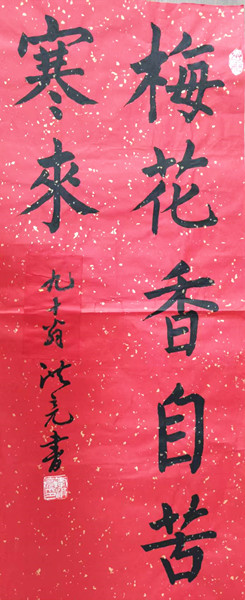 梅花香自苦
寒來
九十翁洪元書